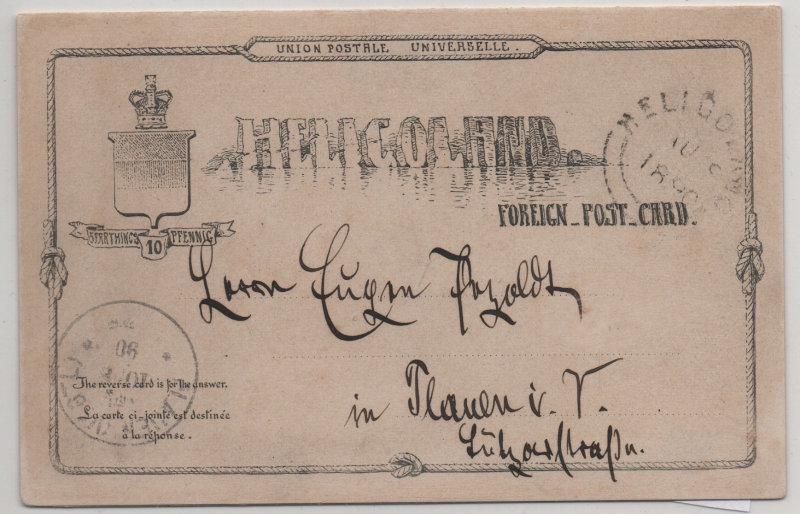 UNION POSTALE UNIVERSELLE.
HELIGOLAND.
HELIGOLAND
1890
FOREIGN_POST_CARD.
5 FARTHINGS 10 PFENNIG
Herrn Eugen Pezoldt
in Plauen i. V.
The reverse card is for the answer.
La carte ci-jointe est destinée
à la réponse.